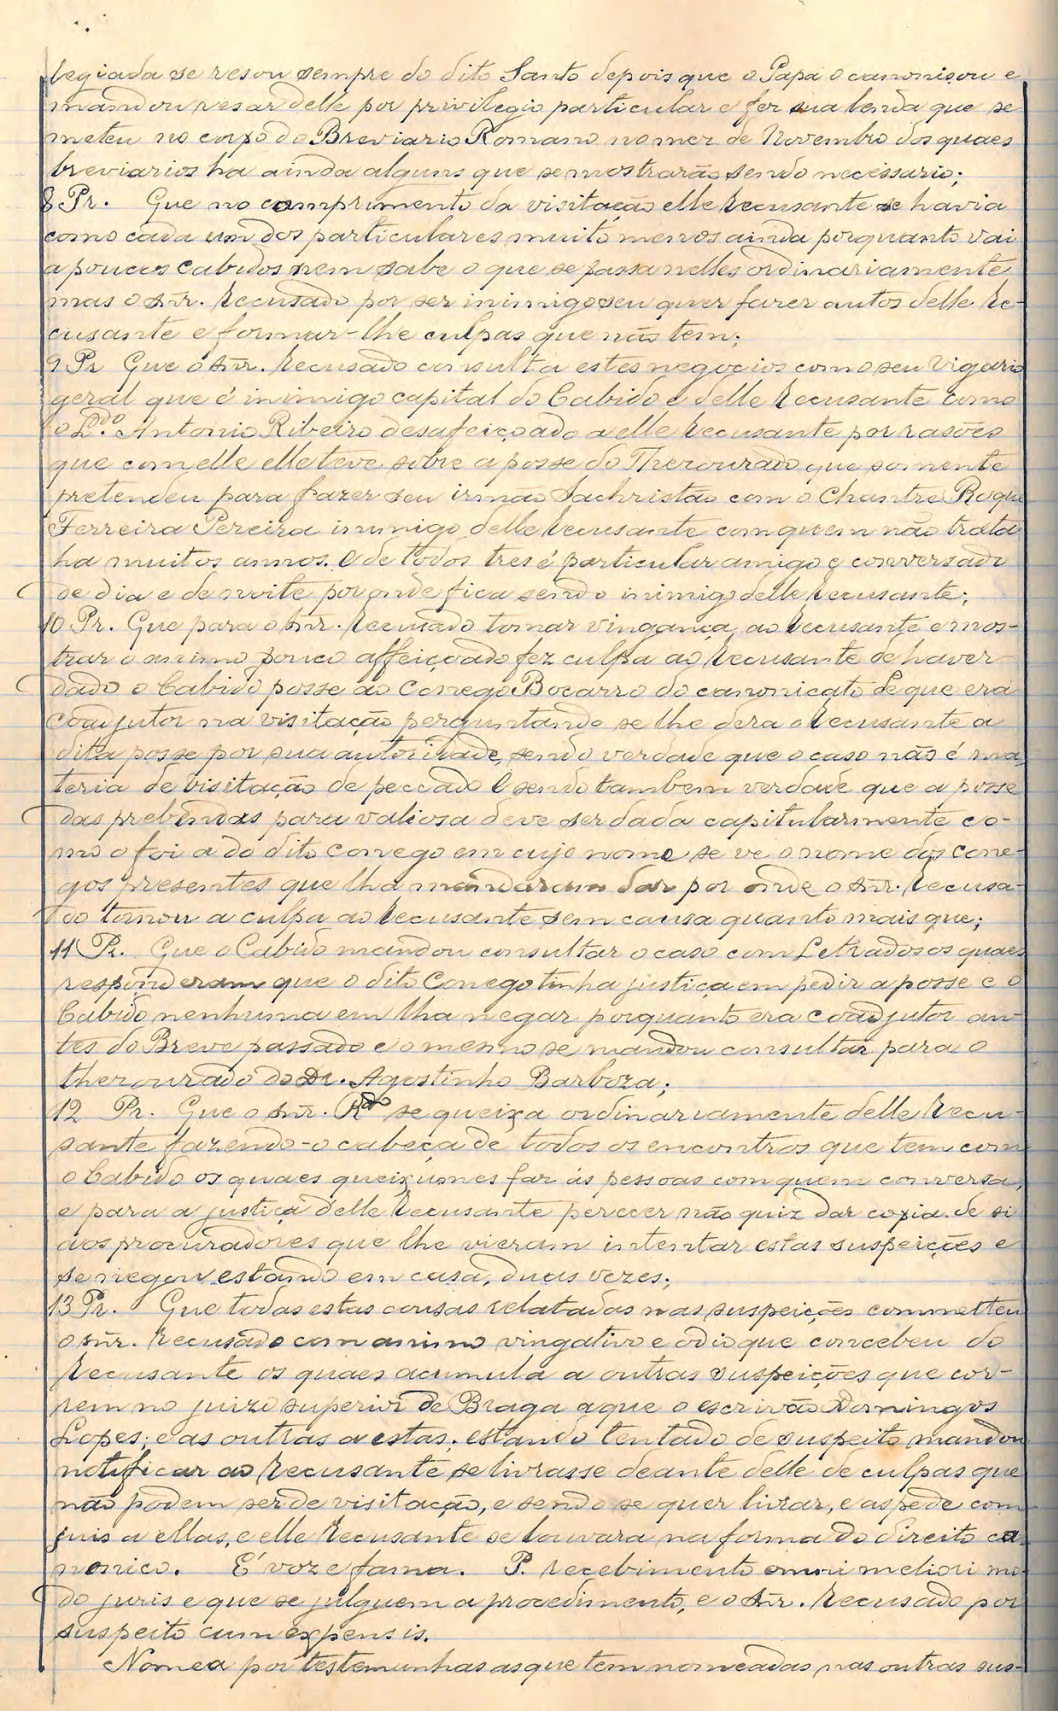 legiada se resou sempre do dito Santo depois que o Papa o canonisou e
mandou resar delle por privilegio particular e fez sua lenda que se
meteu no corpo do Breviario Romano no mez de Novembro dos quaes
breviarios ha ainda alguns que se mostrarão sendo necessario;
8 Pr. Que no comprimento da visitação elle Recusante se havia
como cada um dos particulares muito menos ainda porquanto vai
a poucos Cabidos nem sabe o que se passa nelles ordinariamente
mas o Snr. Recusado por ser inimigo seu quer fazer autos delle Re-
cusante e formar-lhe culpas que não tem;
9 Pr Que o Snr. Recusado consulta estes negocios com o seu Vigario
geral que é inimigo capital do Cabido e delle Recusante como
o L.do Antonio Ribeiro desafeiçoado a elle Recusante por rasões
que com elle elle teve sobre a posse do Thezourado que somente
pretendeu para fazer seu irmão Sachristão com o Chantre Roque
Ferreira Pereira inimigo delle Recusante com quem não trata
ha muitos annos. E de todos tres é particular amigo e conversado
se dia e de noite por onde fica sendo inimigo delle Recusante;
10 Pr. Que para o Snr. Recusado tomar vingança ao Recusante e mos-
trar o animo pouco affeiçoado fez culpa ao Recusante de haver
dado o Cabido posse ao Conego Bocarro do canonicato de que era
coadjutor na visitação perguntando se lhe dera o Recusante a
dita posse por sua autoridade, sendo verdade que o caso não é ma
teria de visitação de peccado E sendo tambem verdade que a posse
das prebendas para valiosa deve ser dada capitularmente co-
mo o foi a do dito Conego em cujo nome se ve o nome dos Cone-
gos presentes que lha mandaram dar por onde o Snr. Recusa-
do tomou a culpa ao Recusante sem causa quanto mais que;
11 Pr. Que o Cabido mandou consultar o caso com Letrados os quaes
responderam que o dito Conego tinha justiça em pedir a posse e o
Cabido nenhuma em lha negar porquanto era coadjutor an-
tes do Breve passado e o mesmo se mandou consultar para o
thezourado do Dr. Agostinho Barboza;
12 Pr. Que o Snr. R.do se queixa ordinariamente delle Recu-
sante fazendo-o cabeça de todos os encontros que tem com
o Cabido os quaes queixumes faz ás pessoas com quem conversa,
e para a justiça delle Recusante perecer não quiz dar copia de si
aos procuradores que lhe vieram intentar estas suspeições e
se negou estando em casa, duas vezes;
13 Pr. Que todas estas cousas relatadas nas suspeições commetteu
o Snr. Recusado com animo vingativo e odio que concebeu do
Recusante os quaes acumula a outras suspeições que cor-
rem no juizo superior de Braga a que o escrivão Domingos
Lopes; e as outras a estas; estando tentado de suspeito mandou
notificar ao Recusante se livrasse deante delle de culpas que
não podem ser de visitação, e sendo se quer livrar, e as pede com
juis a ellas, e elle Recusante se louvara na forma do direito ca-
nonico. E' voz e fama. P. recebimento omni meliori mo-
do juris e que se julguem a procedimento, e o Snr. Recusado por
suspeito cum expensis.
Nomea por testemunhas as que tem nomeadas nas outras sus-